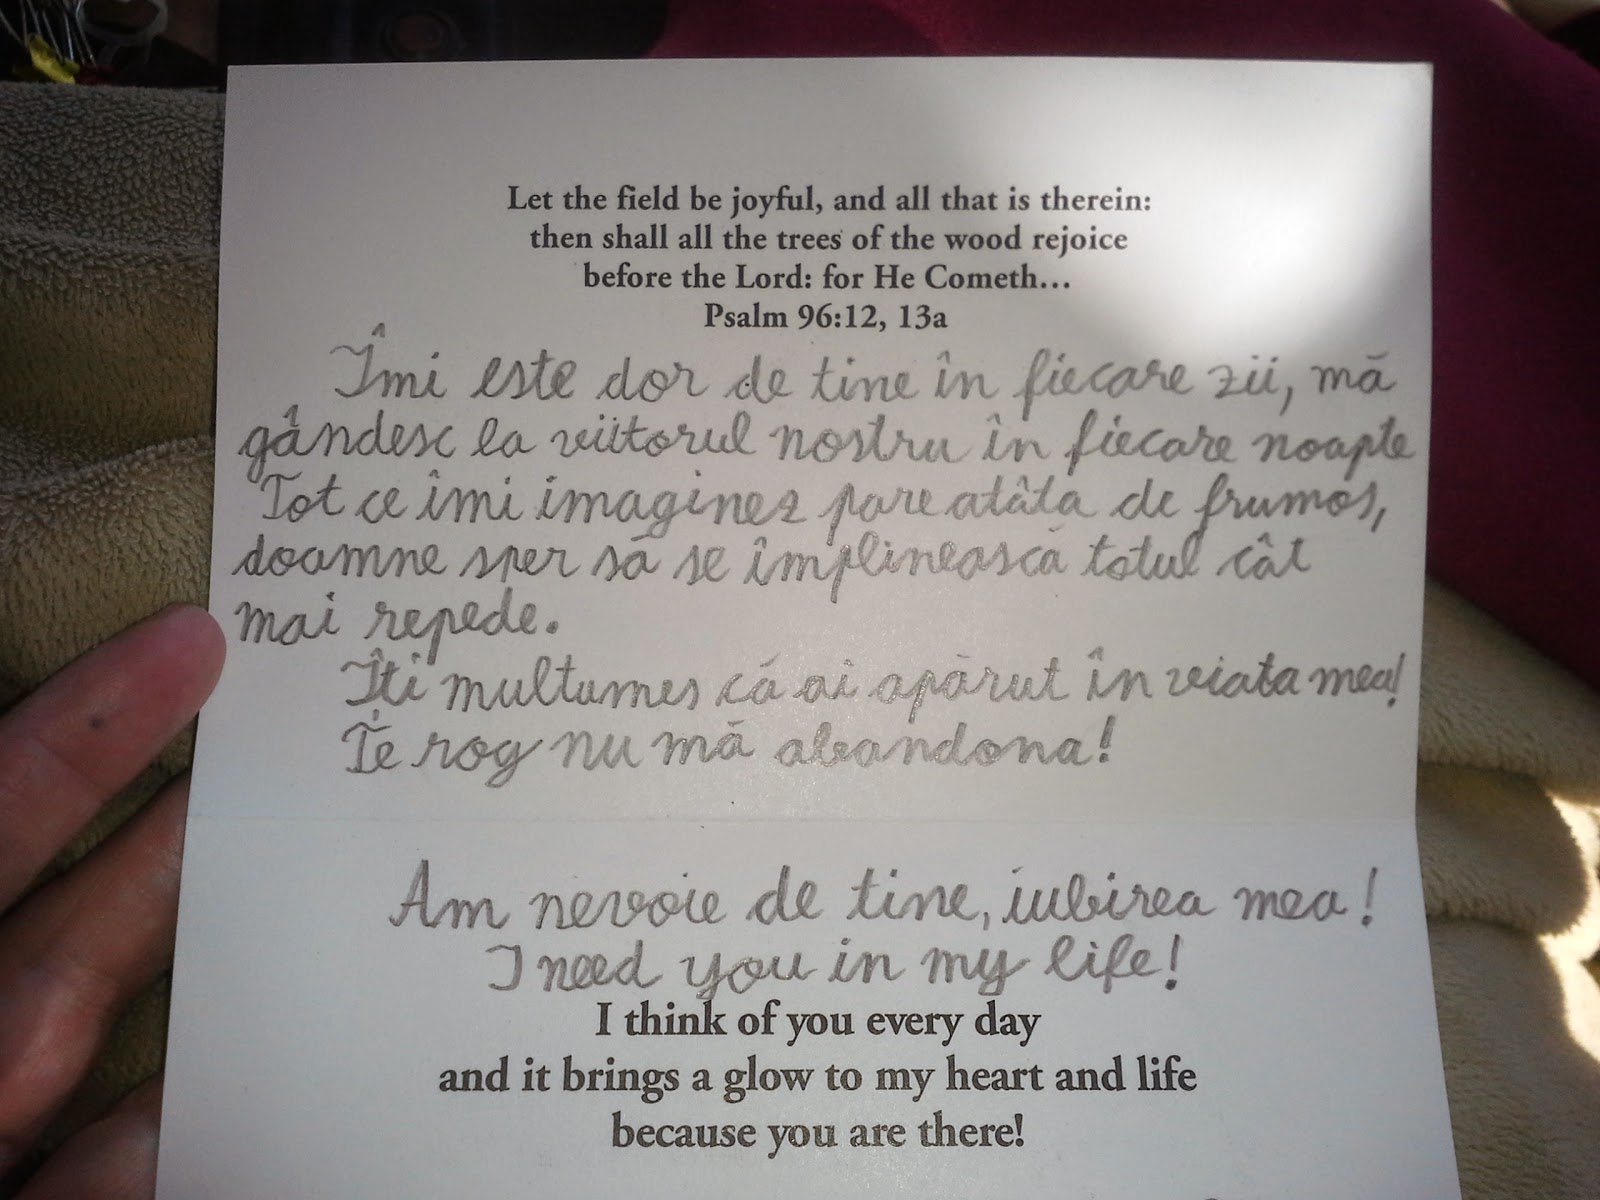 Let the field be joyful, and all that is therein:
then shall all the trees of the wood rejoice
before the Lord: for He Cometh...
Psalm 96:12, 13a
Îmi este dor de tine în fiecare zii, mă
gândesc la viitorul nostru în fiecare noapte
Tot ce îmi imaginez pare atâta de frumos,
doamne sper să se împlinească totul cât
mai repede.
Îti multumes că ai apărut în viata mea!
Te rog nu mă abandona!
Am nevoie de tine, iubirea mea!
I need you in my life!
I think of you every day
and it brings a glow to my heart and life
because you are there!